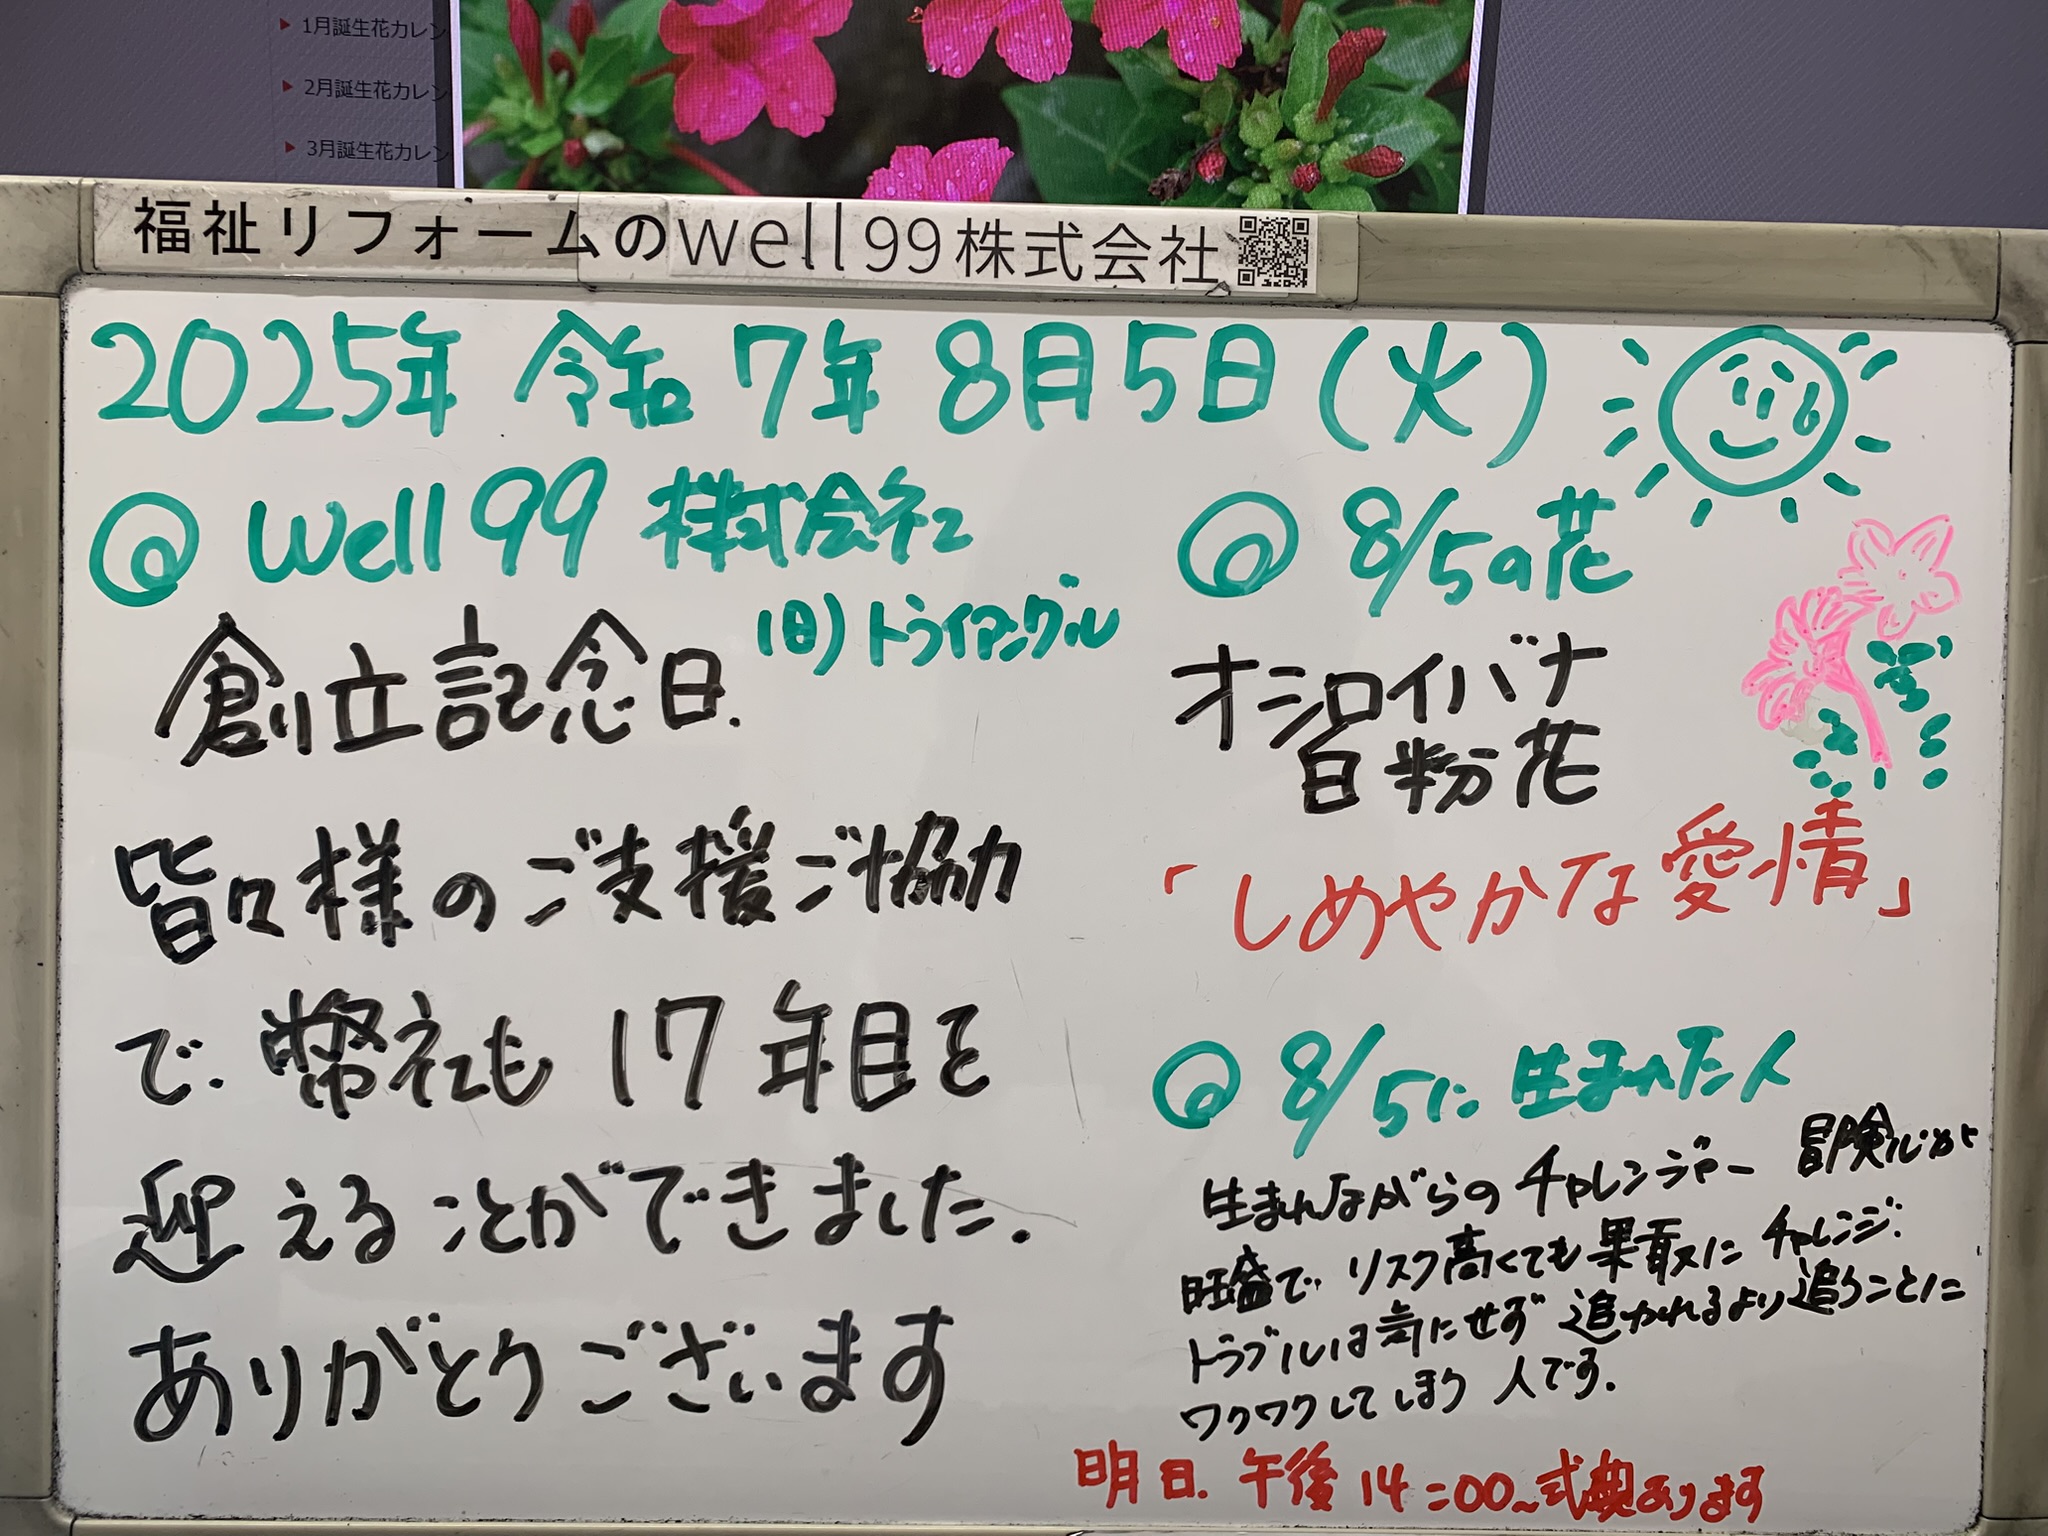 1月誕生花カレン
2月誕生花カレン
3月誕生花カレン
福祉リフォームのwell99株式会社
2025年 令和7年 8月5日(火)
@ well99 株式会社
(旧)トライアングル
創立記念日.
皆々様のご支援ご協力
で.弊社も17年目を
迎えることができました.
ありがとうございます
@ 8/5の花
オシロイバナ
白粉花
「しめやかな愛情」
@ 8/5に生まれた人
生まれながらのチャレンジャー 冒険心が
旺盛で リスク高くても果敢にチャレンジ.
トラブルは気にせず 追かれるより追うことに
ワクワクしてしまう 人です.
明日.午後14:00~式典あります